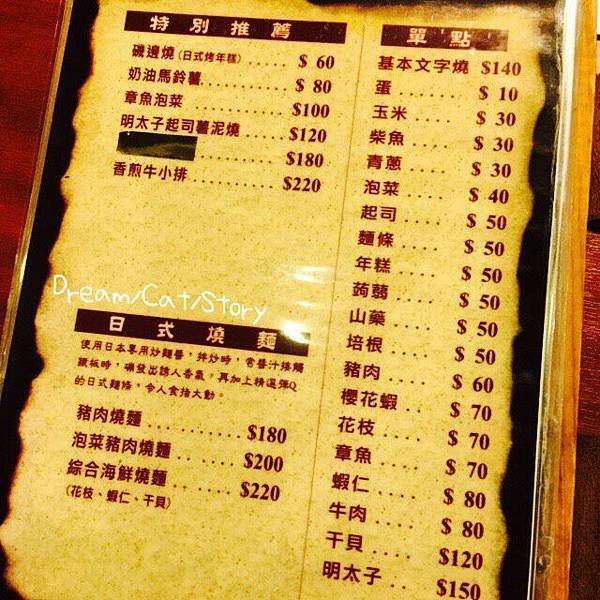 特別推薦
磯邊燒(日式烤年糕)...... $ 60
奶油馬鈴薯............ $ 80
章魚泡菜............ $100
明太子起司薯泥燒...... $120
............ $180
香煎牛小排.......... $220
Dream/Cat/Story
日式燒麵
使用日本專用炒麵醬，拌炒時，當醬汁接觸
鐵板時，礦發出誘人香氣。再加上精選彈Q
的日式麵條，令人食指大動。
豬肉燒麵.......... $180
泡菜豬肉燒麵....... $200
綜合海鮮燒麵....... $220
(花枝、蝦仁、干貝)
單點
基本文字燒 $140
蛋........ $ 10
玉米..... $ 30
柴魚..... $ 30
青蔥..... $ 30
泡菜..... $ 40
起司..... $ 50
麵條..... $ 50
年糕..... $ 50
蒟蒻..... $ 50
山藥..... $ 50
培根..... $ 50
豬肉..... $ 60
櫻花蝦... $ 70
花枝..... $ 70
章魚..... $ 70
蝦仁..... $ 80
牛肉..... $ 80
干貝..... $120
明太子.. $150